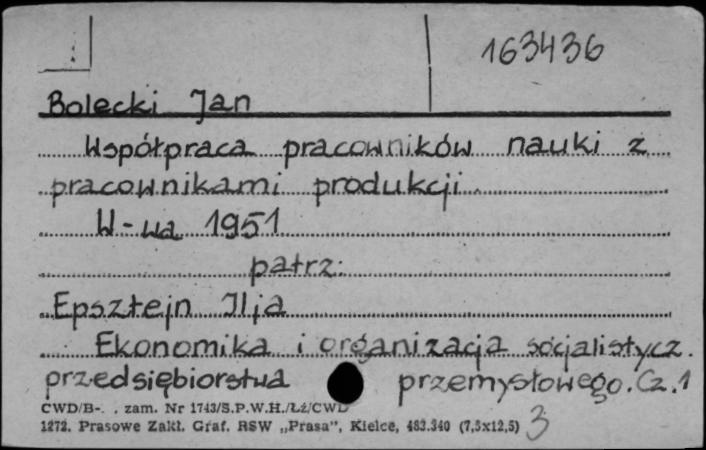 163436
Bolecki Jan
Współpraca pracowników nauki z
pracownikami produkcji
W-wa 1951
patrz:
Epsztejn Ilja
Ekonomika i organizacja socjalistycz.
przedsiębiorstwa przemysłowego. Cz. 1
CWD/B-. . zam. Nr 1743/S.P.W.H./Łż/CWD
1272. Prasowe Zakł. Graf. RSW „Prasa”, Kielce, 483.340 (7,5x12,5) 3